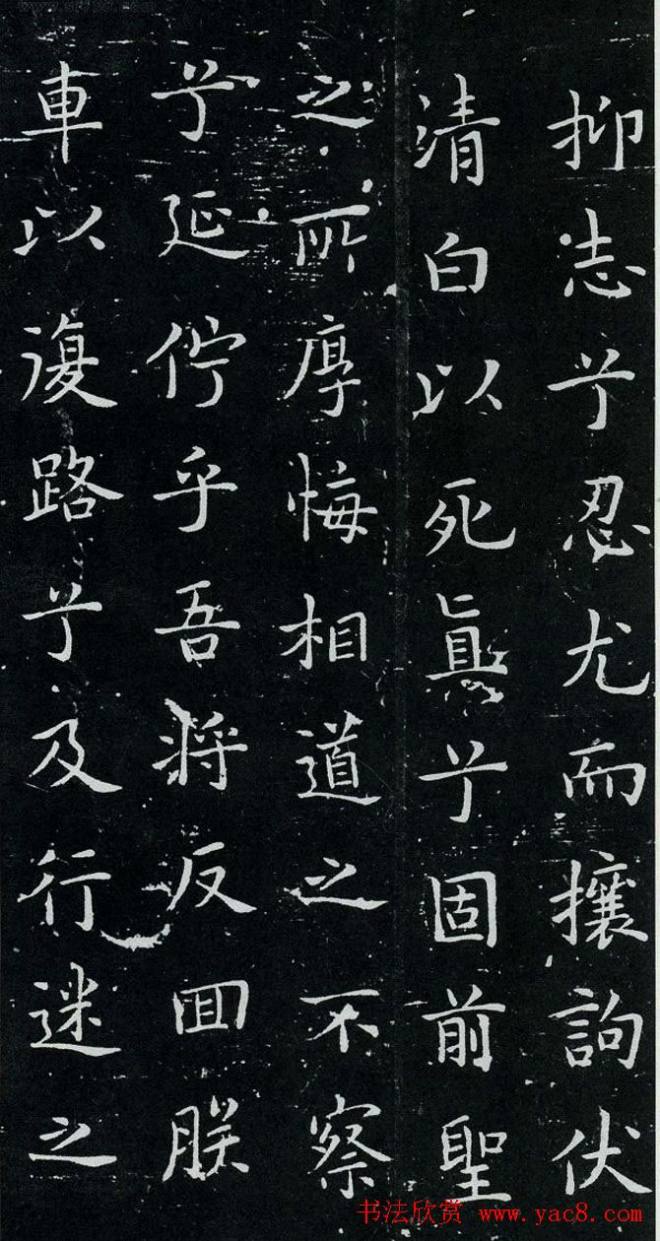 抑志兮忍尤而攘詢伏
清白以死真兮固前聖
之所厚悔相道之不察
兮延佇乎吾將反回朕
車以復路兮及行迷之
书法欣赏 www.yac8.com